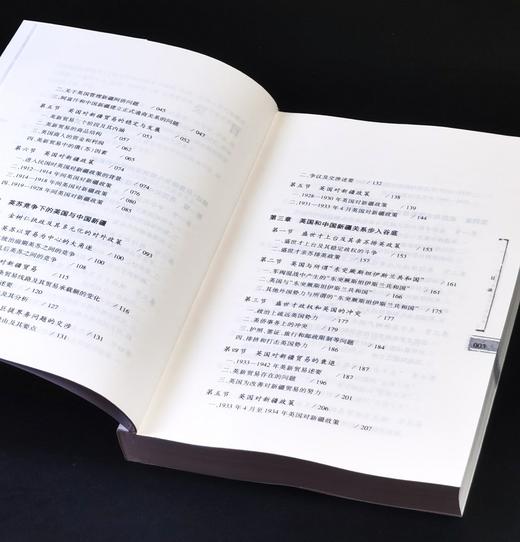 二、关于英国管理新疆阿侨问题 / 045
三、阿富汗和中国新疆建立正式通商关系的问题 / 047
第五节 英国对新疆贸易的稳定与发展 / 052
一、英新贸易三个阶段及其内涵 / 053
二、英新贸易的商品结构 / 057
三、英国商人的资金和利润 / 062
四、英新贸易中的俄(苏)因素 / 065
第六节 英国对新疆政策 / 074
一、进入民国时英国对新疆政策的背景 / 074
二、1912—1914年间英国对新疆政策 / 076
三、1914—1918年间英国对新疆政策
四、1919—1928年间英国对新疆政策
英苏竞争下的英国与中国新疆
金树仁执政及其多元化的对外政策 / 093
英苏以贸易为中心的大角逐 / 100
统治前期英苏之间的竞争 / 100
乱后英苏之间的竞争 / 108
对新疆贸易 / 115
贸易线路及其贸易承载额的变化 / 116
述要 / 120
及其分析 / 127
坎巨提界务问题的交涉 / 131
由及其要点 / 131
二、争议及交涉述要 / 132
第五节 英国对新疆政策 / 138
一、1928—1930年英国对新疆政策 / 139
二、1931—1933年4月英国对新疆政策 / 144
第三章 英国和中国新疆关系步入谷底
第一节 盛世才上台及其亲苏排英政策 / 153
一、盛世才上台及其稳定政权的斗争 / 153
二、盛世才亲苏排英政策 / 155
第二节 英国与所谓“东突厥斯坦伊斯兰共和国” / 161
一、军阀混战中产生的“东突厥斯坦伊斯兰共和国” / 161
二、英国与“东突厥斯坦伊斯兰共和国” / 166
三、其他外国势力与所谓的“东突厥斯坦伊斯兰共和国” / 175
第三节 盛世才政权和英国的冲突 / 177
一、政治上疏远英国势力 / 177
二、英侨事务上的冲突 / 179
三、护照、签证、旅行和邮政限制等问题 / 184
四、排挤和打击英国势力 / 186
第四节 英国对新疆贸易的衰退 / 187
一、1933—1942年英新贸易述要 / 187
二、英新贸易存在的问题 / 196
三、英国为改善对新疆贸易的努力 / 201
第五节 英国对新疆政策 / 206
一、1933年4月至1934年英国对新疆政策 / 207
目录
003